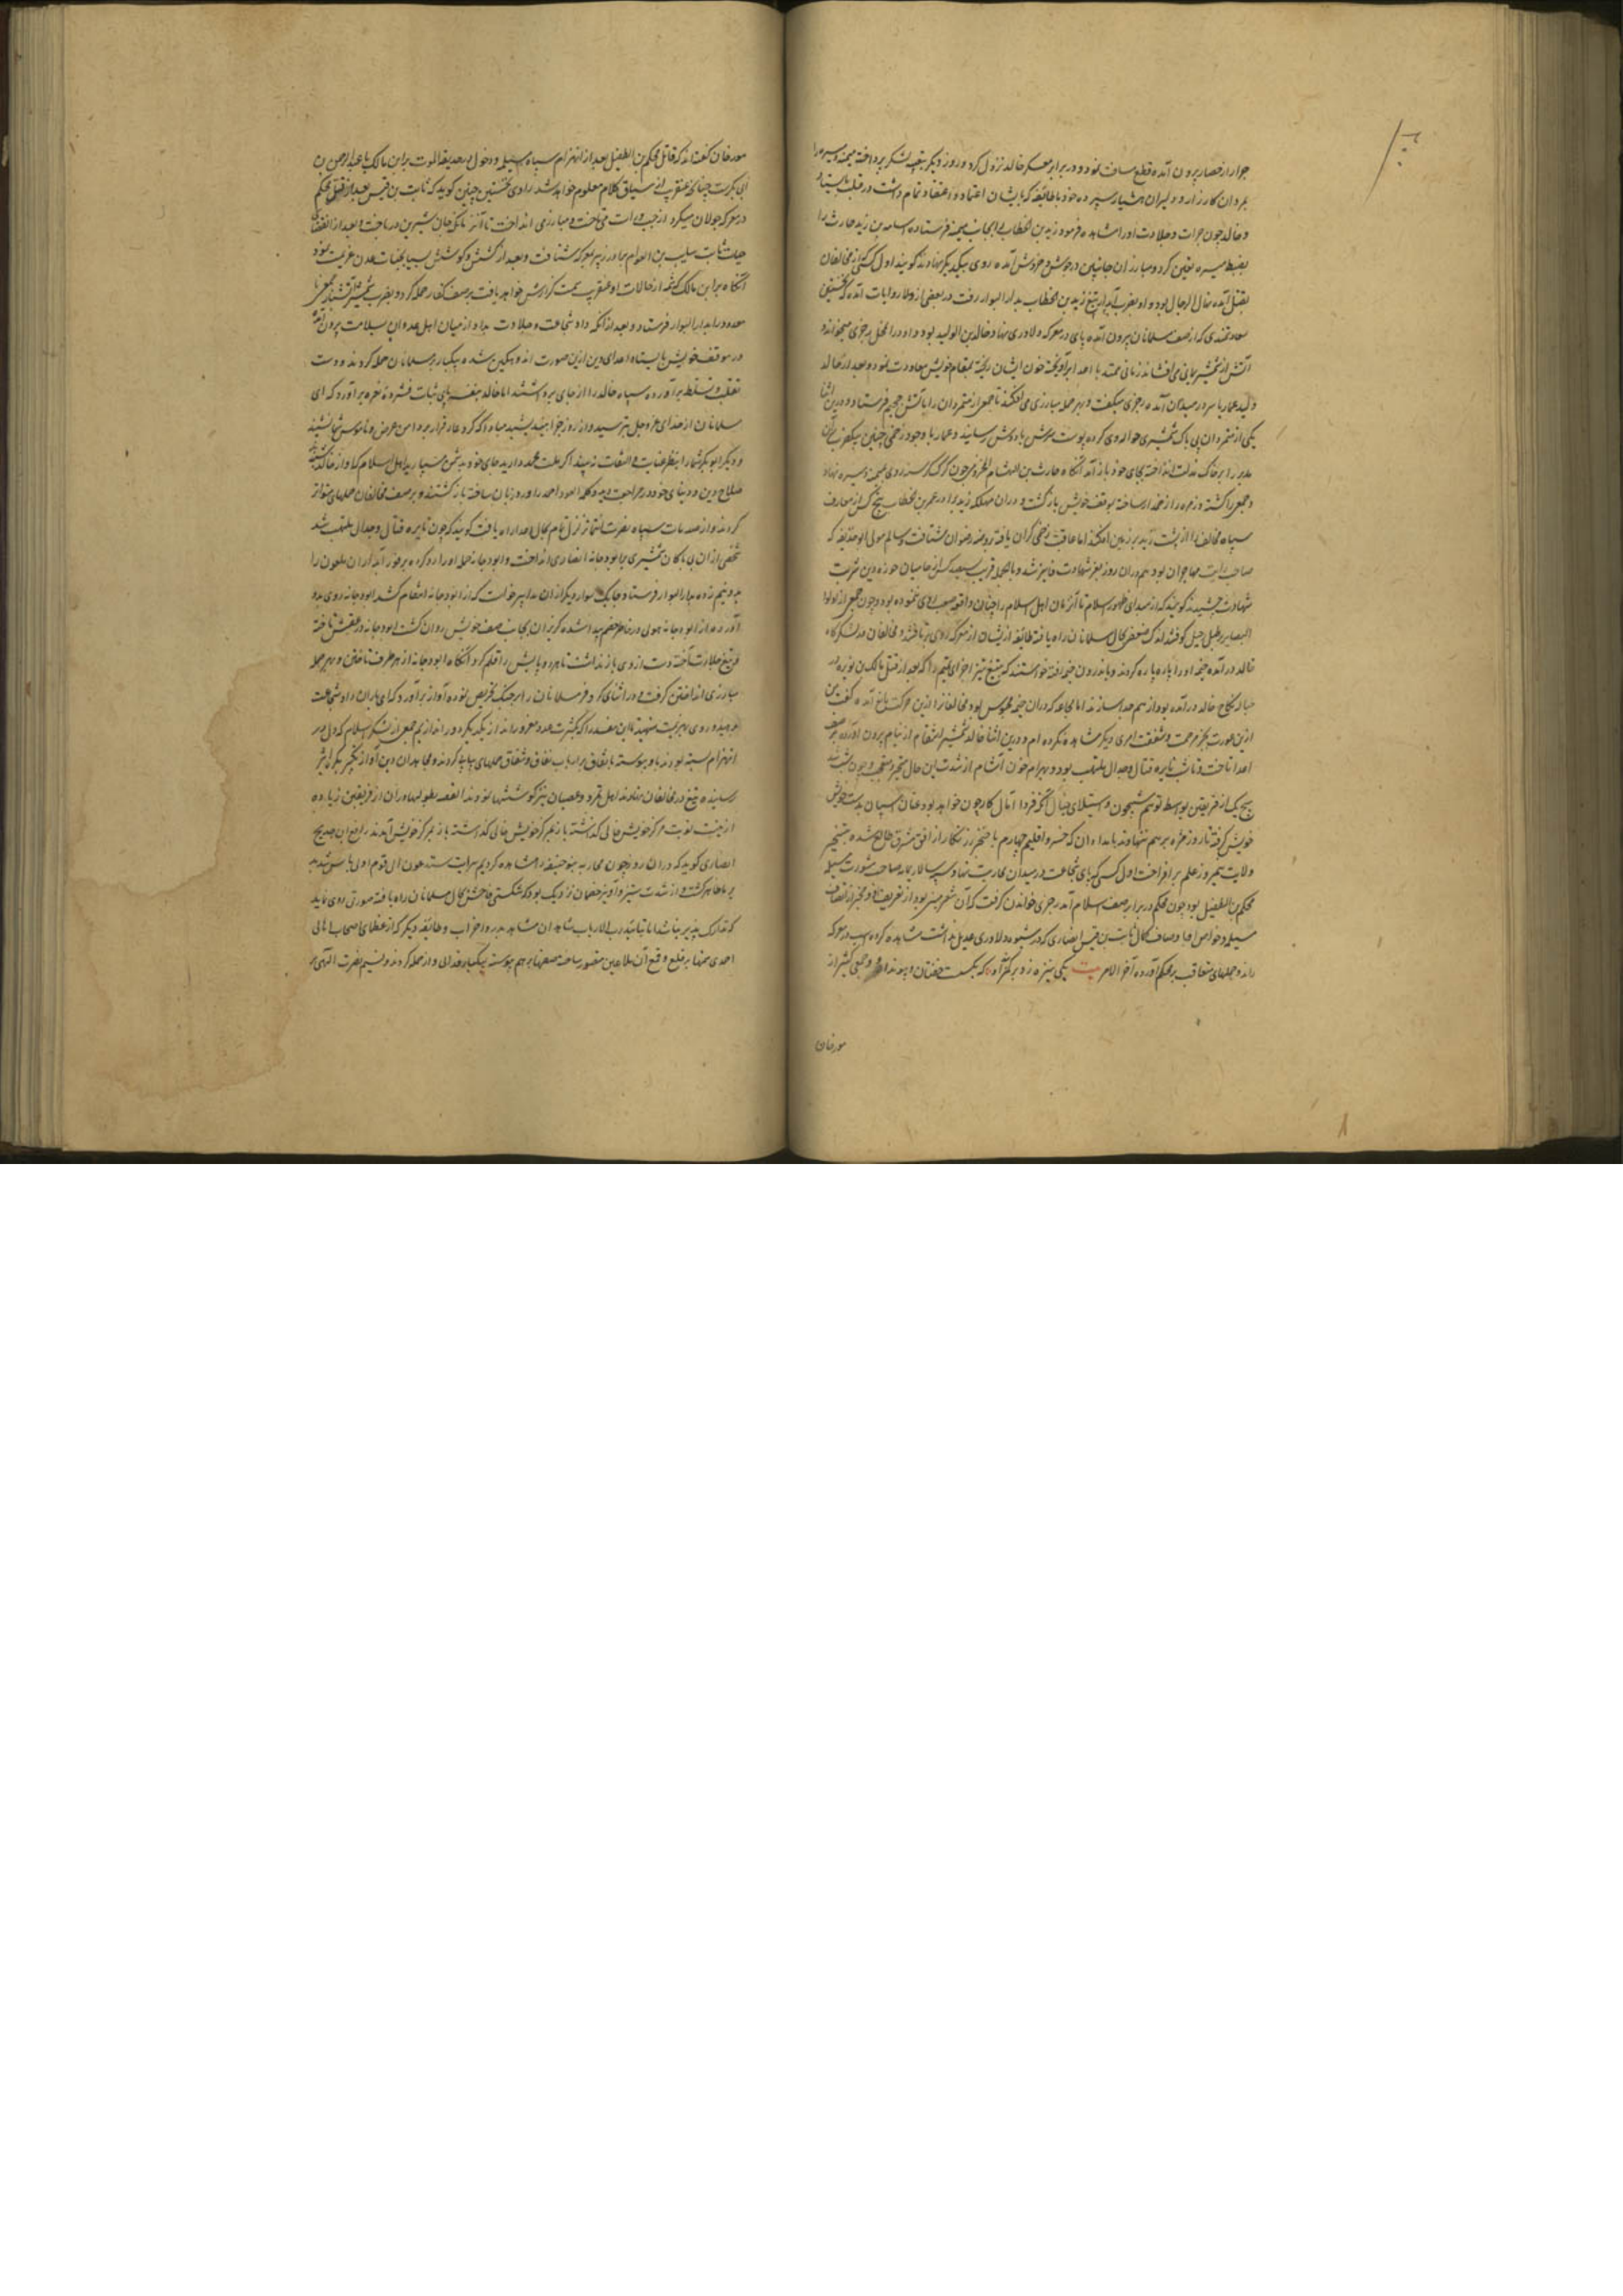 جرار از حصار بیرون آمده قطع مسافت نمود و در برابر معسکر خالد نزول کرد و روز دیگر بتعبیه لشکر پرداخته میمنه و میسره را
بمردان کارزار و دلیران هشیار سپرده خود با طائفه که بایشان اعتماد و اعتقاد تمام داشت در قلب بایستاد
و خالد چون جرات و جلادت او را مشاهده فرمود زید بن الخطاب را بجانب میمنه فرستاده اسامه بن زید حارث را
بضبط میسره تعیین کرد و مبارزان جانبین در جوش و خروش آمده روی بیکدیگر نهادند گویند اول کسی که از مخالفان
بقتل آمده رحال الرجال بود و او بضرب آبدار تیغ زید بن الخطاب بدار البوار رفت و در بعضی از روایات آمده که نخستین
سعادتمندی که از صف مسلمانان بیرون آمده پای در معرکه دلاوری نهاد خالد بن الولید بود و او در آن محل رجزی میخواند و
آتش از شمشیر یمانی می افشاند زمانی ممتد با اعدا برآویخته خون ایشان ریخته بمقام خویش معاودت نمود و بعد از خالد
ولید عمار یاسر در میدان آمده رجزی میگفت و بهر حمله مبارزی می افکند تا جمعی از متمردان را بآتش جحیم فرستاد و درین اثنا
یکی از متمردان بی باک شمشیری حواله وی کرده پوست سرش با دوش رسانید و عمار با وجود زخمی چنین بیک ضرب آن
مدبر را بر خاک مذلت انداخته بجای خود باز آمد آنگاه حارث بن هشام المخزومی چون گرگ گرسنه روی بمیمنه و میسره نهاد
و جمعی را کشته و زمره را زخمدار ساخته بموقف خویش بازگشت و در آن مهلکه زید برادر عمر بن خطاب پنج کس از معارف
سپاه مخالف را از پشت زین بر زمین افکند اما عاقبت زخمی گران یافته بروضه رضوان شتافت و سالم مولی ابو حذیفه که
صاحب رایت مهاجران بود هم در آن روز بعز شهادت فایز شد و بالجمله قریب سیصد کس از حامیان حوزه دین شربت
شهادت چشیدند گویند که از مبدای ظهور اسلام تا آن زمان اهل اسلام را چنان واقعه صعب روی ننموده بود و چون جمعی از اولو
البصایر بطبل رحیل کوفتند اندک ضعفی بحال مسلمانان راه یافته طائفه از ایشان از معرکه روی برتافتند و مخالفان در لشکرگاه
خالد درآمده خیمه او را پاره پاره کردند و باندرون خیمه رفته خواستند که بتیغ تیز اجزای لیلی را که بعد از قتل مالک بن نویره در
حباله نکاح خالد درآمده بود از هم جدا سازند اما مجاعه که در آن خیمه محبوس بود مخالفان را ازین حرکت مانع آمده گفت من
ازین عورت بجز مرحمت و شفقت امری دیگر مشاهده نکرده ام و درین اثنا خالد شمشیر انتقام از نیام بیرون آورده بر صف
اعدا تاخت و تا شب نایره قتال و جدال ملتهب بود و بهرام خون آشام از شدت این حال متحیر و متعجب و چون شب شد
هیچ یک از فریقین بواسطه توهم شبیخون و استیلای خیال آنکه فردا مآل کار چون خواهد بود عنان اسپان بدست خویش
خویش گرفته تا روز مژه بر هم ننهادند بامدادان که خسرو اقلیم چهارم با خنجر زرنگار از افق مشرق طالع شده بتسخیر
ولایت نیمروز علم برافراخت اول کسی که پای شجاعت در میدان محاربت نهاد سپهسالار یمامه صاحب مشورت مسیلمه
محکم بن الطفیل بود چون محکم در برابر صف اسلام آمد رجزی خواندن گرفت که آن شعر مبنی بود از تعریف او و مخبر از اتصاف
مسیلمه و خواص او باوصاف کمال ثابت بن قیس انصاری که در شیوه دلاوری عدیل نداشت مشاهده کرده اسب در معرکه
راند و حملهای متعاقب بر محکم آورده آخر الامر بیت یکی نیزه زد بر کمرگاه او که بگسست خفتان و پیوند او و جمعی کثیر از
مورخان
مورخان گفته اند که قاتل محکم بن الطفیل بعد از انهزام سپاه مسیلمه و دخول در حدیقة الموت براء بن مالک یا عبدالرحمن بن
ابی بکرست چنانکه عنقریب از سیاق کلام معلوم خواهد شد راوی نخستین چنین گوید که ثابت بن قیس بعد از قتل محکم
در معرکه جولان میکرد و از چپ و راست می تاخت و مبارزی انداخت تا آنزمانکه جان شیرین درباخت و بعد از انقضای
حیات ثابت سایب بن العوام برادر زبیر بمعرکه شتافت و بعد از کشش و کوشش بسیار بجنات عدن عزیمت نمود
آنگاه براء بن مالک که شمه از حالات او عنقریب سمت گزارش خواهد یافت بر صف کفار حمله کرد و بضرب شمشیر آتشبار جمعی نا
معدود را بدار البوار فرستاد و بعد از آنکه داد شجاعت و جلادت بداد از میان اهل عدوان بسلامت بیرون آمد
در موقف خویش بایستاد اعدای دین ازین صورت اندوهگین شده بیکبار بر مسلمانان حمله کردند و دست
تغلب و تسلط برآورده سپاه خالد را از جای برداشتند اما خالد بنفسه پای ثبات فشرده نعره برآورد که ای
مسلمانان از خدای عز و جل بترسید و از روز جزا بیندیشید مبادا که گرد عار فرار بر دامن عرض و ناموس شما نشیند
و دیگر ابوبکر شما را بنظر عنایت و التفات نبیند اگر ملت محمد دارید جای خود بدشمن مسپارید اهل اسلام کلام از خالد شنیده
صلاح دین و دنیای خود در مراجعت دیده کلمه العود احمد را ورد زبان ساخته بازگشتند و بر صف مخالفان حملهای متواتر
کردند و از صدمات سپاه نصرت انتما تزلزل تمام بحال اعدا راه یافت گویند که چون نایره قتال و جدال ملتهب شد
شخصی از آن بی باکان شمشیری بابودجانه انصاری انداخت و ابودجانه حمله او را رد کرده بر فور آبدار آن ملعون را
بدو نیم زده بدار البوار فرستاد و چابک سوار دیگر از آن مدابیر خواست که از ابودجانه انتقام کشد ابودجانه روی بدو
آورده از ابودجانه هولی در خاطر خصم پیدا شده گریزان بجانب صف خویش روان گشت ابودجانه در عقبش تاخته
تیغ جلادت آخته دست از وی باز نداشت تا هر دو پایش را قلم کرد آنگاه ابودجانه از هر طرف تاختن و بهر حمله
مبارزی انداختن گرفت و در اثنای کر و فر مسلمانان را بر جنگ تحریص نموده آواز برآورد که ای یاران داد شجاعت
بدهید و روی بهزیمت منهید تا این مفسد را که بکثرت عدد مغرورند از یکدیگر دور اندازیم جمعی از لشکر اسلام که دل بر
انهزام بسته بودند باو پیوسته باتفاق بر ارباب نفاق و شقاق حملهای پیاپی کردند و مجاهدان دین آواز تکبیر بفلک اثیر
رسانیده تیغ در مخالفان نهادند اهل تمرد و عصیان نیز کوششها نمودند القصه بطولها دوران از فریقین زیاده
از بیست نوبت مرکز خویش خالی گذاشته باز بمرکز خویش خالی گذاشته باز بمرکز خویش آمدند رافع بن خدیج
انصاری گوید که در آن روز چون محاربه بنو حنیفه را مشاهده کردیم سرایت ستدعون الی قوم اولی باس شدید
بر ما ظاهر گشت و از شدت ستیز و آویز خصمان نزدیک بود که شکستی فاحش بحال مسلمانان راه یافته صورتی روی نماید
که تدارک پذیر نباشد اما بتائید رب الارباب شاهدان مشاهد بدر و احزاب و طائفه دیگر که از عظمای اصحاب اهالی
احدی همتها بر قلع و قمع آن ملاعین مقصور ساخته صفها بر هم پیوسته بیکبار فدائی وار حمله کردند و نسیم نصرت الهی بر